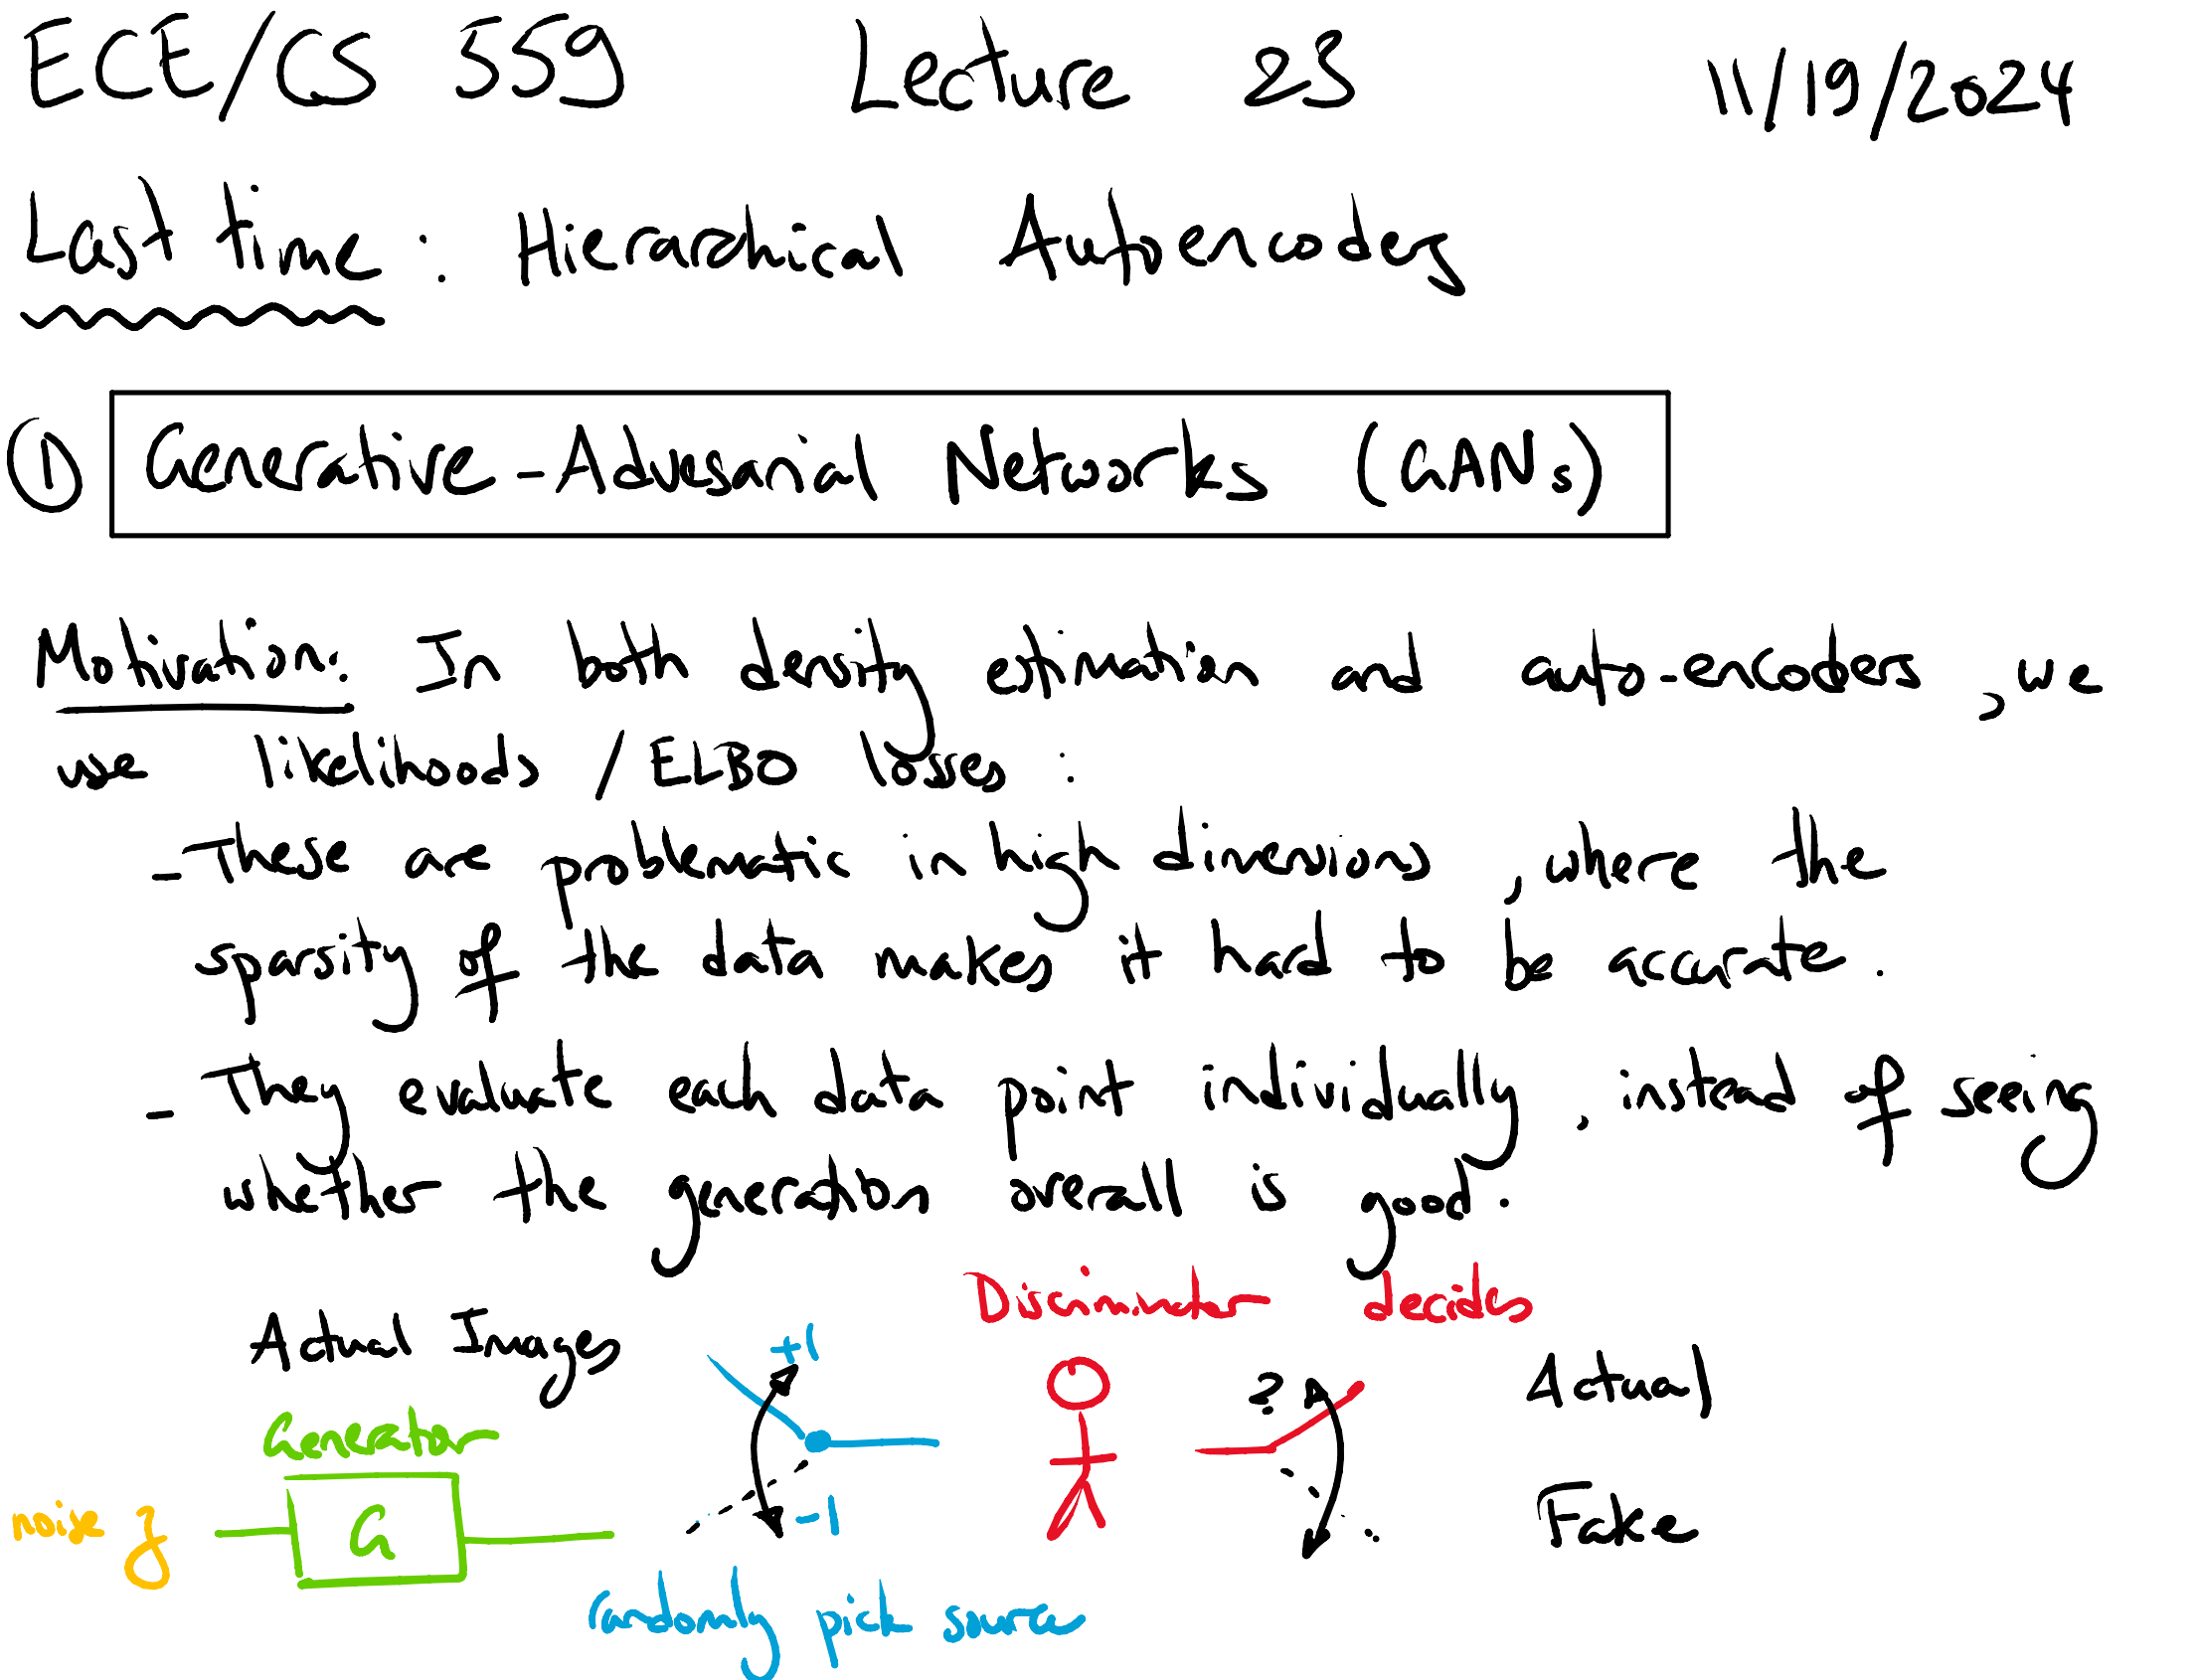 ECE/CS 559 Lecture 23 11/19/2024
Last time : Hierarchical Autoencoders
① Generative-Advesarial Networks (GANs)
Motivation: In both density estimation and auto-encoders, we
use likelihoods / ELBO losses :
- These are problematic in high dimensions, where the
sparsity of the data makes it hard to be accurate.
- They evaluate each data point individually, instead of seeing
whether the generation overall is good.
Discriminator decides
Actual Images +1 ? Actual
Generator
noise z G -1 Fake
randomly pick source